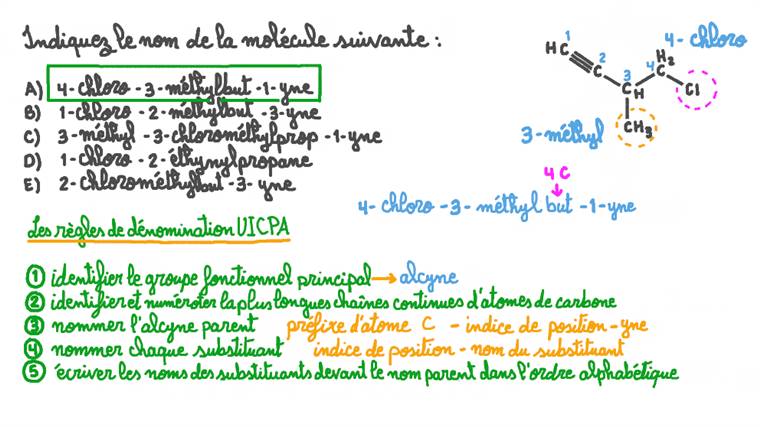 Indiquez le nom de la molécule suivante :
A) 4-chloro-3-méthylbut-1-yne
B) 1-chloro-2-méthylbut-3-yne
C) 3-méthyl-3-chlorométhylprop-1-yne
D) 1-chloro-2-éthynylpropane
E) 2-chlorométhylbut-3-yne
4-chloro
HC 1
2
3 H
4 H2
Cl
CH3
3-méthyl
4C
4-chloro-3-méthylbut-1-yne
Les règles de dénomination UICPA
1 identifier le groupe fonctionnel principal → alcyne
2 identifier et numéroter la plus longues chaînes continues d'atomes de carbone
3 nommer l'alcyne parent préfixe d'atome C - indice de position - yne
4 nommer chaque substituant indice de position - nom du substituant
5 écriver les noms des substituants devant le nom parent dans l'ordre alphabétique